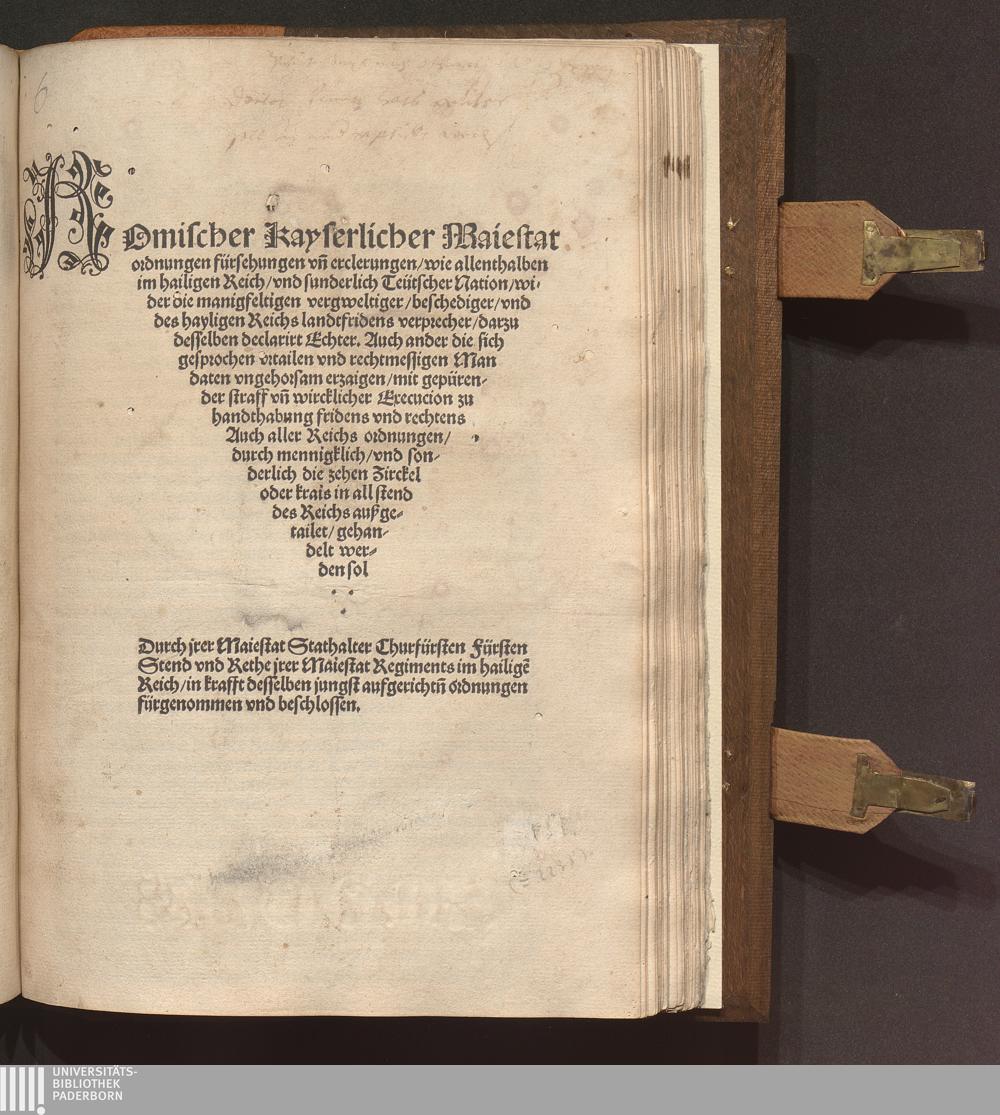 6
ROmiſcher Kayſerlicher Maieſtat
ordnungen fürſehungen vñ erclerungen/wie allenthalben
im hailigen Reich/vnd ſunderlich Teütſcher Nation/wi-
der die manigfeltigen vergweltiger/beſchediger/vnd
des hayligen Reichs landtfridens verprecher/darzu
deſſelben declarirt Echter. Auch ander die ſich
geſprochen vrtailen vnd rechtmeſſigen Man
daten vngehorſam erzaigen/mit gepüren-
der ſtraff vñ wircklicher Execucion zu
handthabung fridens vnd rechtens
Auch aller Reichs ordnungen/
durch mennigklich/vnd ſon-
derlich die zehen Zirckel
oder krais in all ſtend
des Reichs auſzge-
tailet/gehan-
delt wer-
den ſol
Durch jrer Maieſtat Stathalter Churfürſten Fürſten
Stend vnd Rethe jrer Maieſtat Regiments im hailigẽ
Reich/in krafft deſſelben jungſt aufgerichtñ ordnungen
fürgenommen vnd beſchloſſen.
UNIVERSITÄTS-
BIBLIOTHEK
PADERBORN